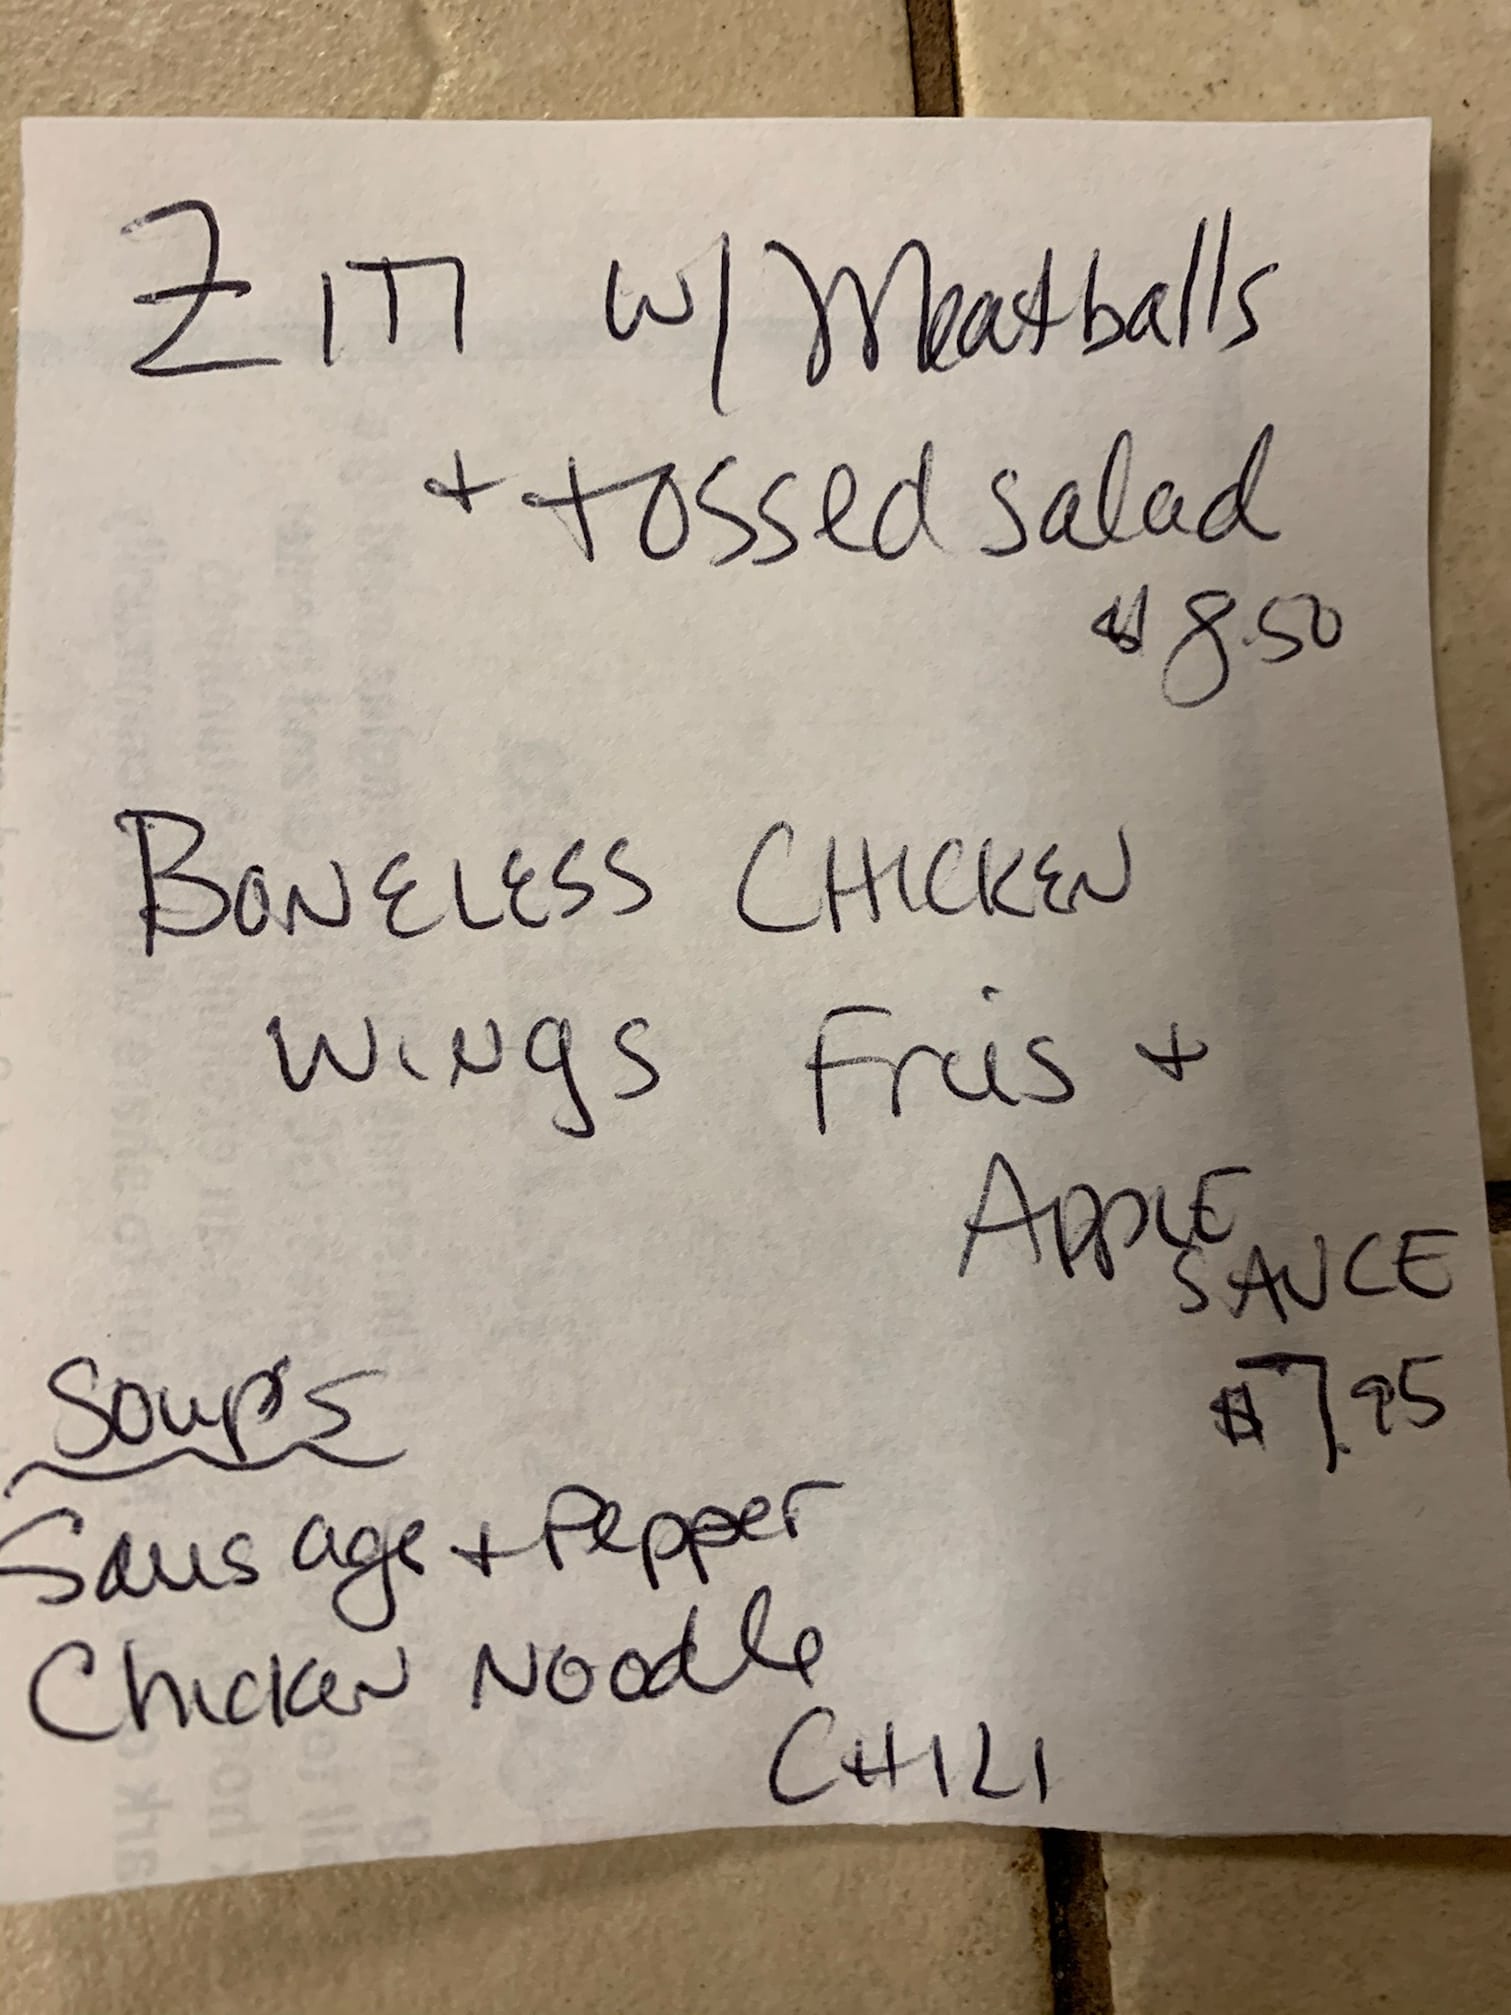 ZITI w/ Meatballs
+ tossed salad
$8.50
BONELESS CHICKEN
WINGS Fries +
APPLE
SAUCE
$7.95
Soup's
Sausage + Pepper
Chicken Noodle
CHILI